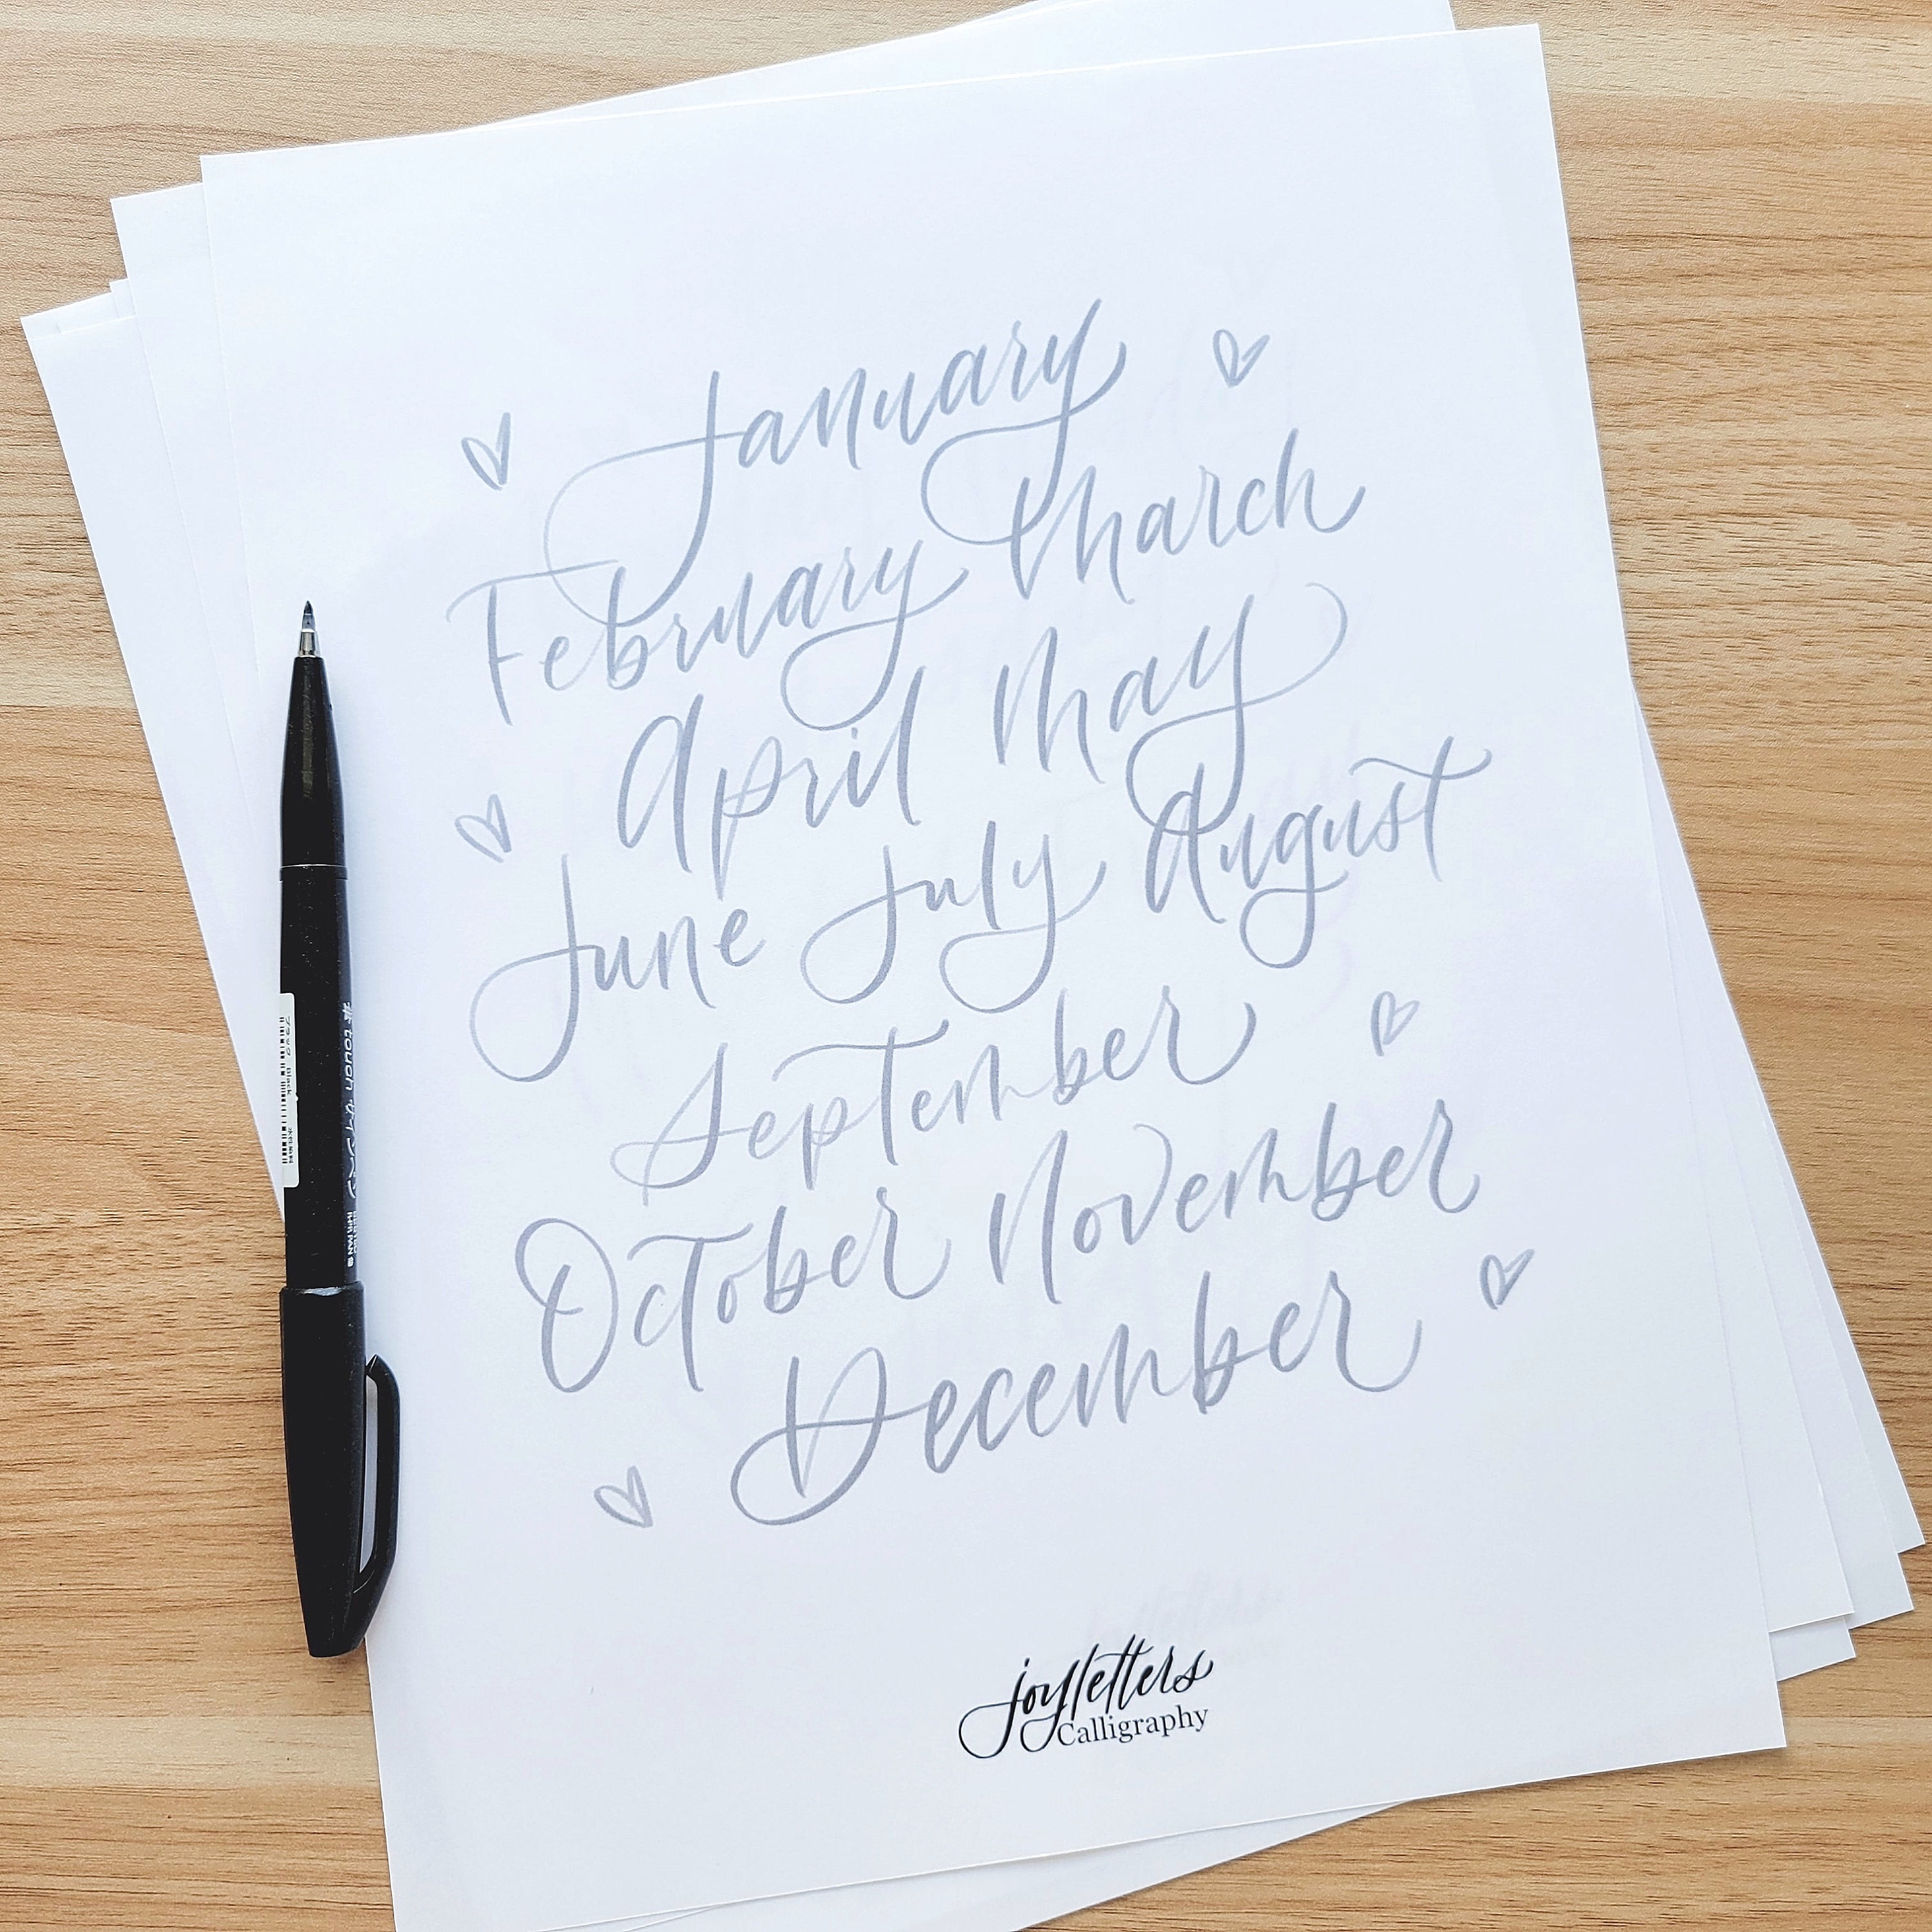 January
February March
April May
June July August
September
October November
December
joyletters
Calligraphy
touch